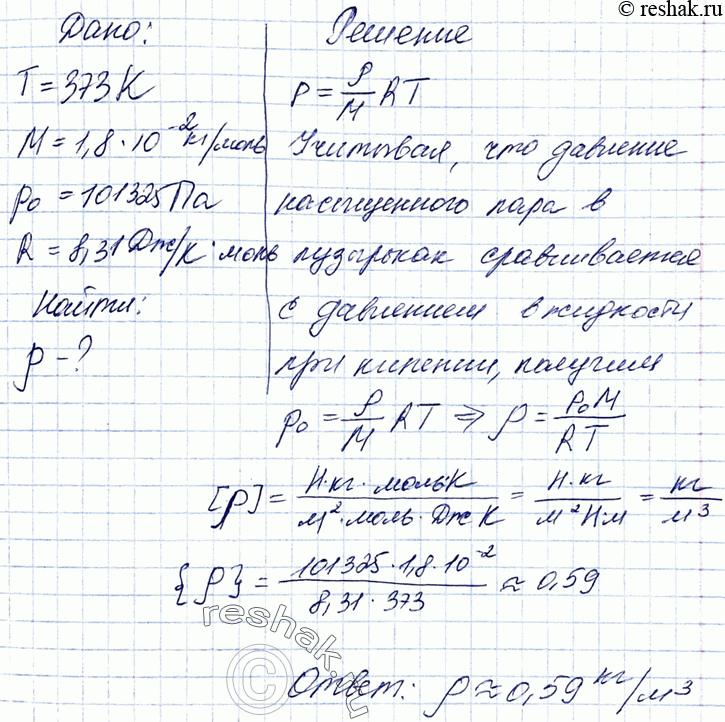 © reshak.ru
Дано:
T = 373 К
M = 1,8 · 10⁻² кг/моль
p₀ = 101325 Па
R = 8,31 Дж/К · моль
Найти:
ρ - ?
Решение
P = ρ/M RT
Учитывая, что давление
насыщенного пара в
пузырьках сравнивается
с давлением в жидкости
при кипении, получим
p₀ = ρ/M RT ⇒ ρ = p₀M/RT
[ρ] = Н·кг·моль·К/м²·моль·Дж К = Н·кг/м²Н·м = кг/м³
{ρ} = 101325·1,8·10⁻²/8,31·373 ≈ 0,59
Ответ: ρ ≈ 0,59 кг/м³
reshak.ru